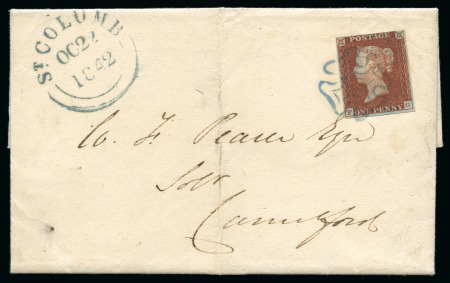 St COLUMB
OC 22
1842
POSTAGE
ONE PENNY
W. F. Pearce Esqr
Solr
Camelford